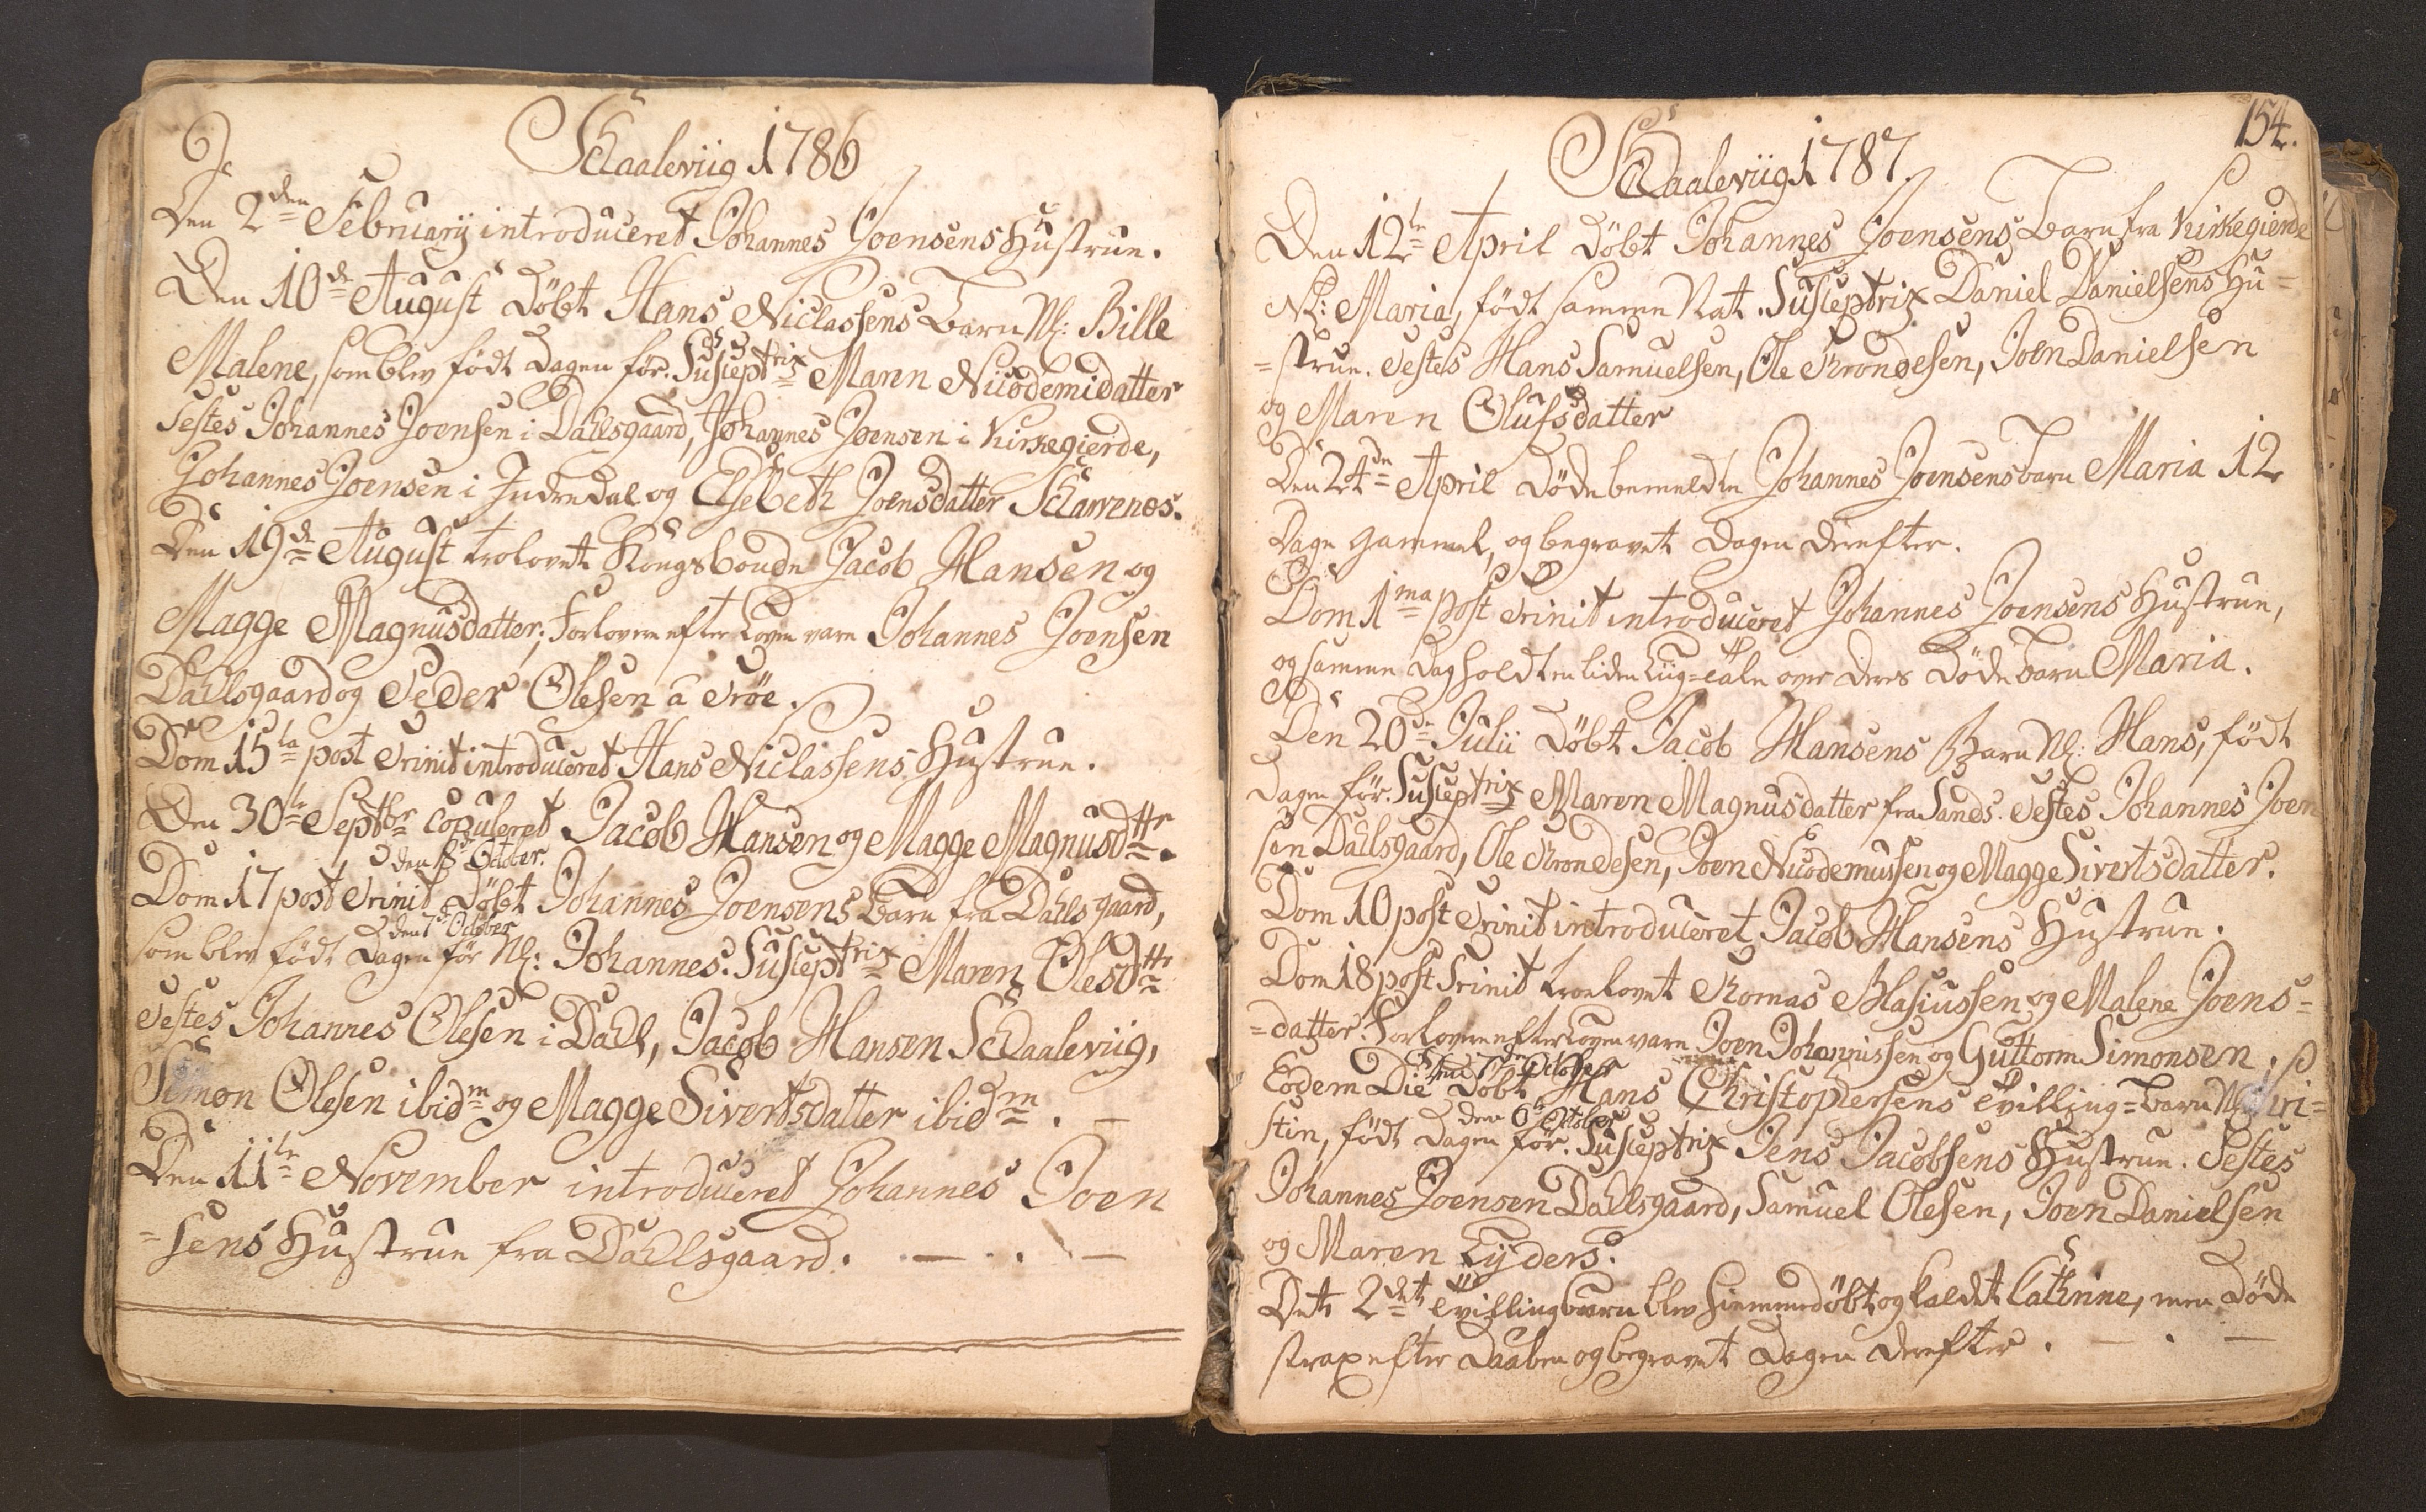 Schaaleviig 1786
Den 2den Februarij introduceret Johannes Joensens Hustrue.
Den 10de August Döbt Hans Niclassens Barn Nl: Bille
Malene, som blev födt Dagen för. Susceptrix Maren Nicodemidatter
Testes Johannes Joensen i Dahlsgaard, Johannes Joensen i Kirkegierde,
Johannes Joensen i Indredal og Elsebeth Joensdatter Scharvenos.
Den 19de August trolovet Kongsbonde Jacob Hansen og
Magge Magnusdatter; Forlovere efter Loven vare Johannes Joensen
Dahlsgaard og Peder Olesen a Tröe.
Dom 15ta post Trinit introduceret Hans Niclassens Hustrue.
Den 30te Septbr copuleret Jacob Hansen og Magge Magnusdttr.
den 8de October.
Dom 17 post Trinit Döbt Johannes Joensens Barn fra Dahlsgaard,
den 7de October
som blev födt Dagen för Nl: Johannes. Susceptrix Maren Olesdttr
Testes Johannes Olesen i Dahl, Jacob Hansen Schaaleviig,
Simon Olesen ibidm og Magge Sivertsdatter ibidm. —
Den 11te November introduceret Johannes Joen
=sens Hustrue fra Dahlsgaard. — . . —
154.
Schaaleviig 1787.
Den 12te April Döbt Johannes Joensens Barn fra Kirkegierde
Nl: Maria, födt samme Nat. Susceptrix Daniel Danielsens Hu=
=strue. Testes Hans Samuelsen, Ole Trondesen, Joen Danielsen
og Maren Olufsdatter
Den 24de April Döde bemeldte Johannes Joensens barn Maria 12
Dage gammel, og begravet Dagen derefter.
Dom 1ma post Trinit introduceret Johannes Joensens Hustrue,
og samme Dag holdt en liden Liig=Tale over deres Döde Barn Maria.
Den 20de Julii Döbt Jacob Hansens Barn Nl: Hans, födt
Dagen för. Susceptrix Maren Magnusdatter fra Sands. Testes Johannes Joen
sen Dahlsgaard, Ole Trondesen, Joen Nicodemussen og Magge Sivertsdatter.
Dom 10 post Trinit introduceret Jacob Hansens Hustrue.
Dom 18 post Trinit troelovet Thomas Blasiussen og Malene Joens=
=datter. Forlovere efter Loven vare Joen Johannissen og Guttorm Simonsen.
7de October
Eodem Die Döbt Hans Christophersens Tvilling=Barn Nl: Kri=
den 6te October
stin, födt Dagen för. Susceptrix Jens Jacobsens Hustrue. Testes
Johannes Joensen Dahlsgaard, Samuel Olesen, Joen Danielsen
og Maren Lyders.
Det 2det Tvillingbarn blev hiemmedöbt og kaldet Cathrine, men Döde
strax efter Daaben og begravet Dagen derefter. — . —